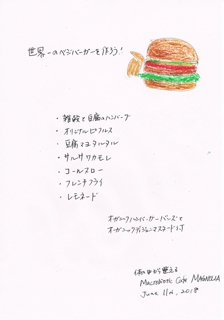 世界一のベジバーガーを作ろう！
・雑穀と豆腐のハンバーグ
・オリジナルピクルス
・豆腐マヨタルタル
・サルサワカモレ
・コールスロー
・フレンチフライ
・レモネード
オーガニックハンバーガーバンズと
オーガニックディジョンマスタード付
体の中から整える
Macrobiotic Cafe MAGNOLIA
June 11th, 2018